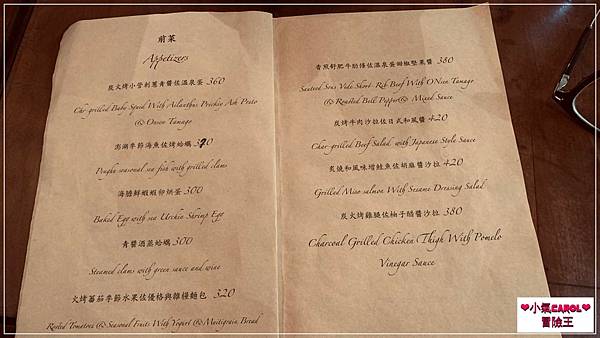 前菜
Appetizers
炭火烤小管刺蔥青醬佐溫泉蛋 360
Char-grilled Baby Squid With Ailanthus Prickie Ash Pesto
& Onsen Tamago
澎湖季節海魚佐烤蛤蠣
Penghu seasonal sea fish with grilled clams
海膽鮮蝦蝦卵烘蛋 300
Baked Egg with sea Urchin Shrimp Egg
青醬酒蒸蛤蠣 300
Steamed clams with green sauce and wine
火烤蕃茄季節水果佐優格與雜糧麵包 320
Rosted Tomatoes & Seasonal Fruits With Yogurt & Multigrain Bread
香煎舒肥牛肋條佐溫泉蛋甜椒堅果醬 380
Sauteed Sous Vide Short-Rib Beef With ONsen Tamago
& Roasted Bell Pepper & Mixed Sauce
炭烤牛肉沙拉佐日式和風醬 420
Char-grilled Beef Salad with Japanese Style Sauce
炙燒和風味增鮭魚佐胡麻醬沙拉 420
Grilled Miso salmon With Sesame Dressing Salad
炭火烤雞腿佐柚子醋醬沙拉 380
Charcoal Grilled Chicken Thigh With Pomelo
Vinegar Sauce
❤小氣CAROL❤
冒險王